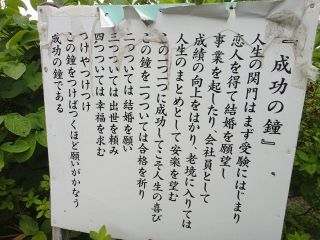 『成功の鐘』
人生の関門はまず受験にはじまり
恋人を得て結婚を願望し
事業を起したり、会社員として
成績の向上をはかり、老境に入りては
人生のまとめとして安楽を望む
この一つ一つに成功してこそ人生の喜び
この鐘を一つついては合格を祈り
二つついては結婚を願い
三つついては出世を頼み
四つついては幸福を求む
つけやつけつけ
この鐘をつけばつくほど願いがかなう
成功の鐘である